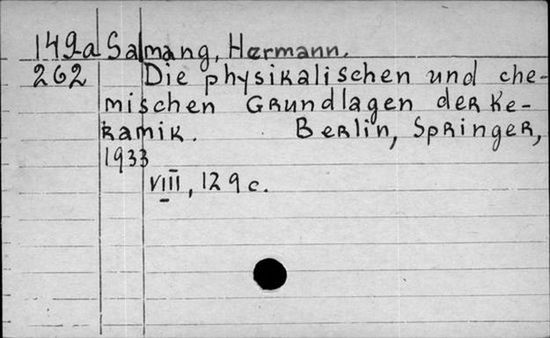 149a Salmang, Hermann.
262 Die physikalischen und che-
mischen Grundlagen der Ke-
ramik. Berlin, Springer,
1933
VIII, 129 c.